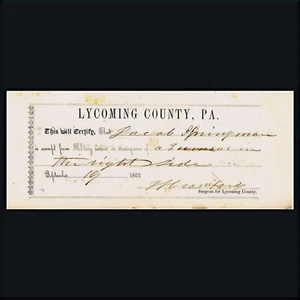 LYCOMING COUNTY, PA.
This will Certify, That Jacob Springman
is exempt from Military duties in consequence of a Tumour in
the right Side
September 19 1862
Crawford
Surgeon for Lycoming County.